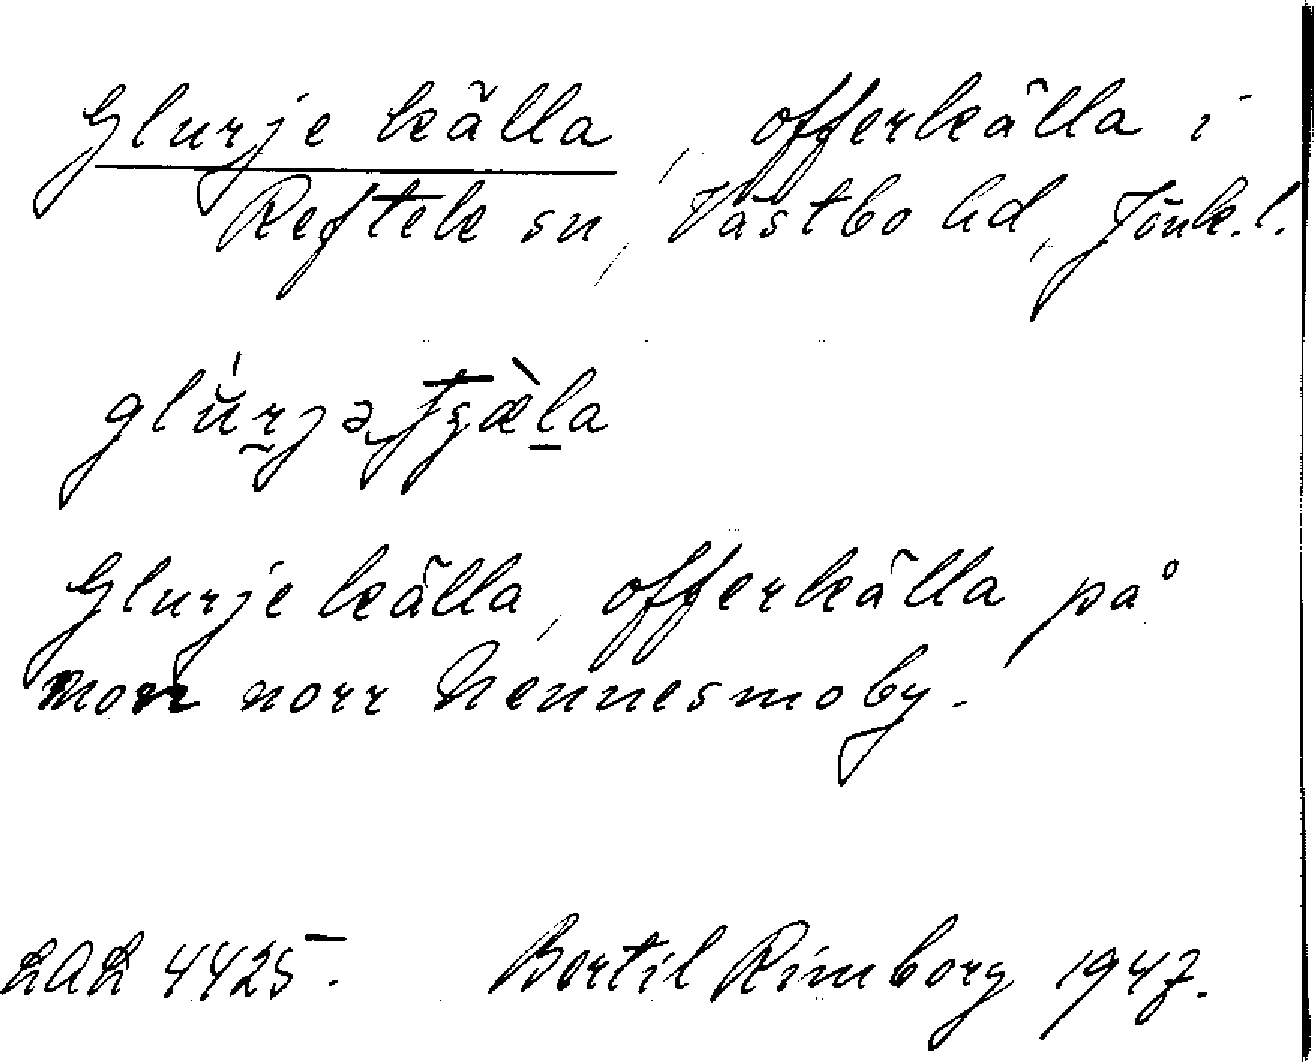 Glurje källa, offerkälla i
Reftele sn, Västbo hd, Jönk.l.
Glurje källa, offerkälla på
norr Nennesmoby.
LAL 4425. Bertil Rimborg 1947.